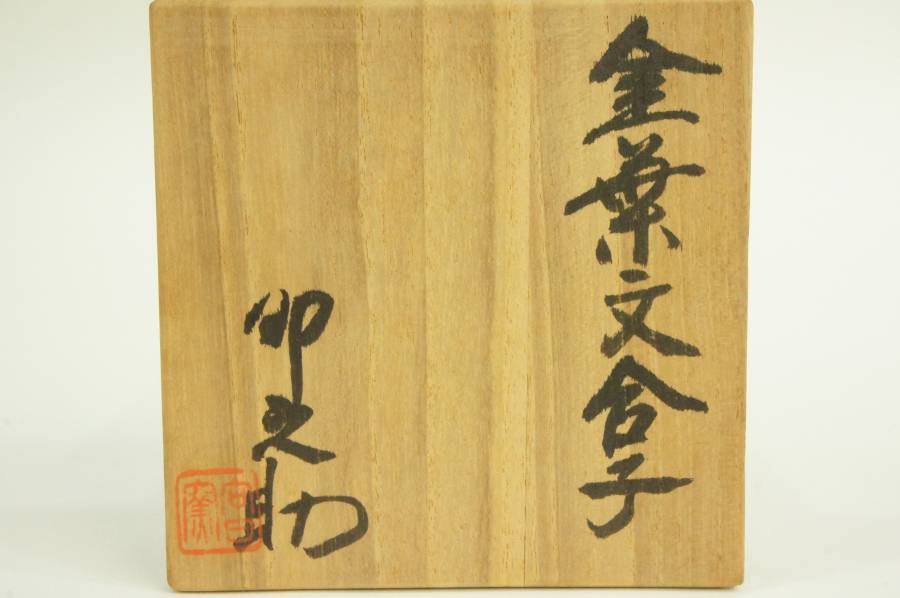 金葉文合子
卯之助
宮窯